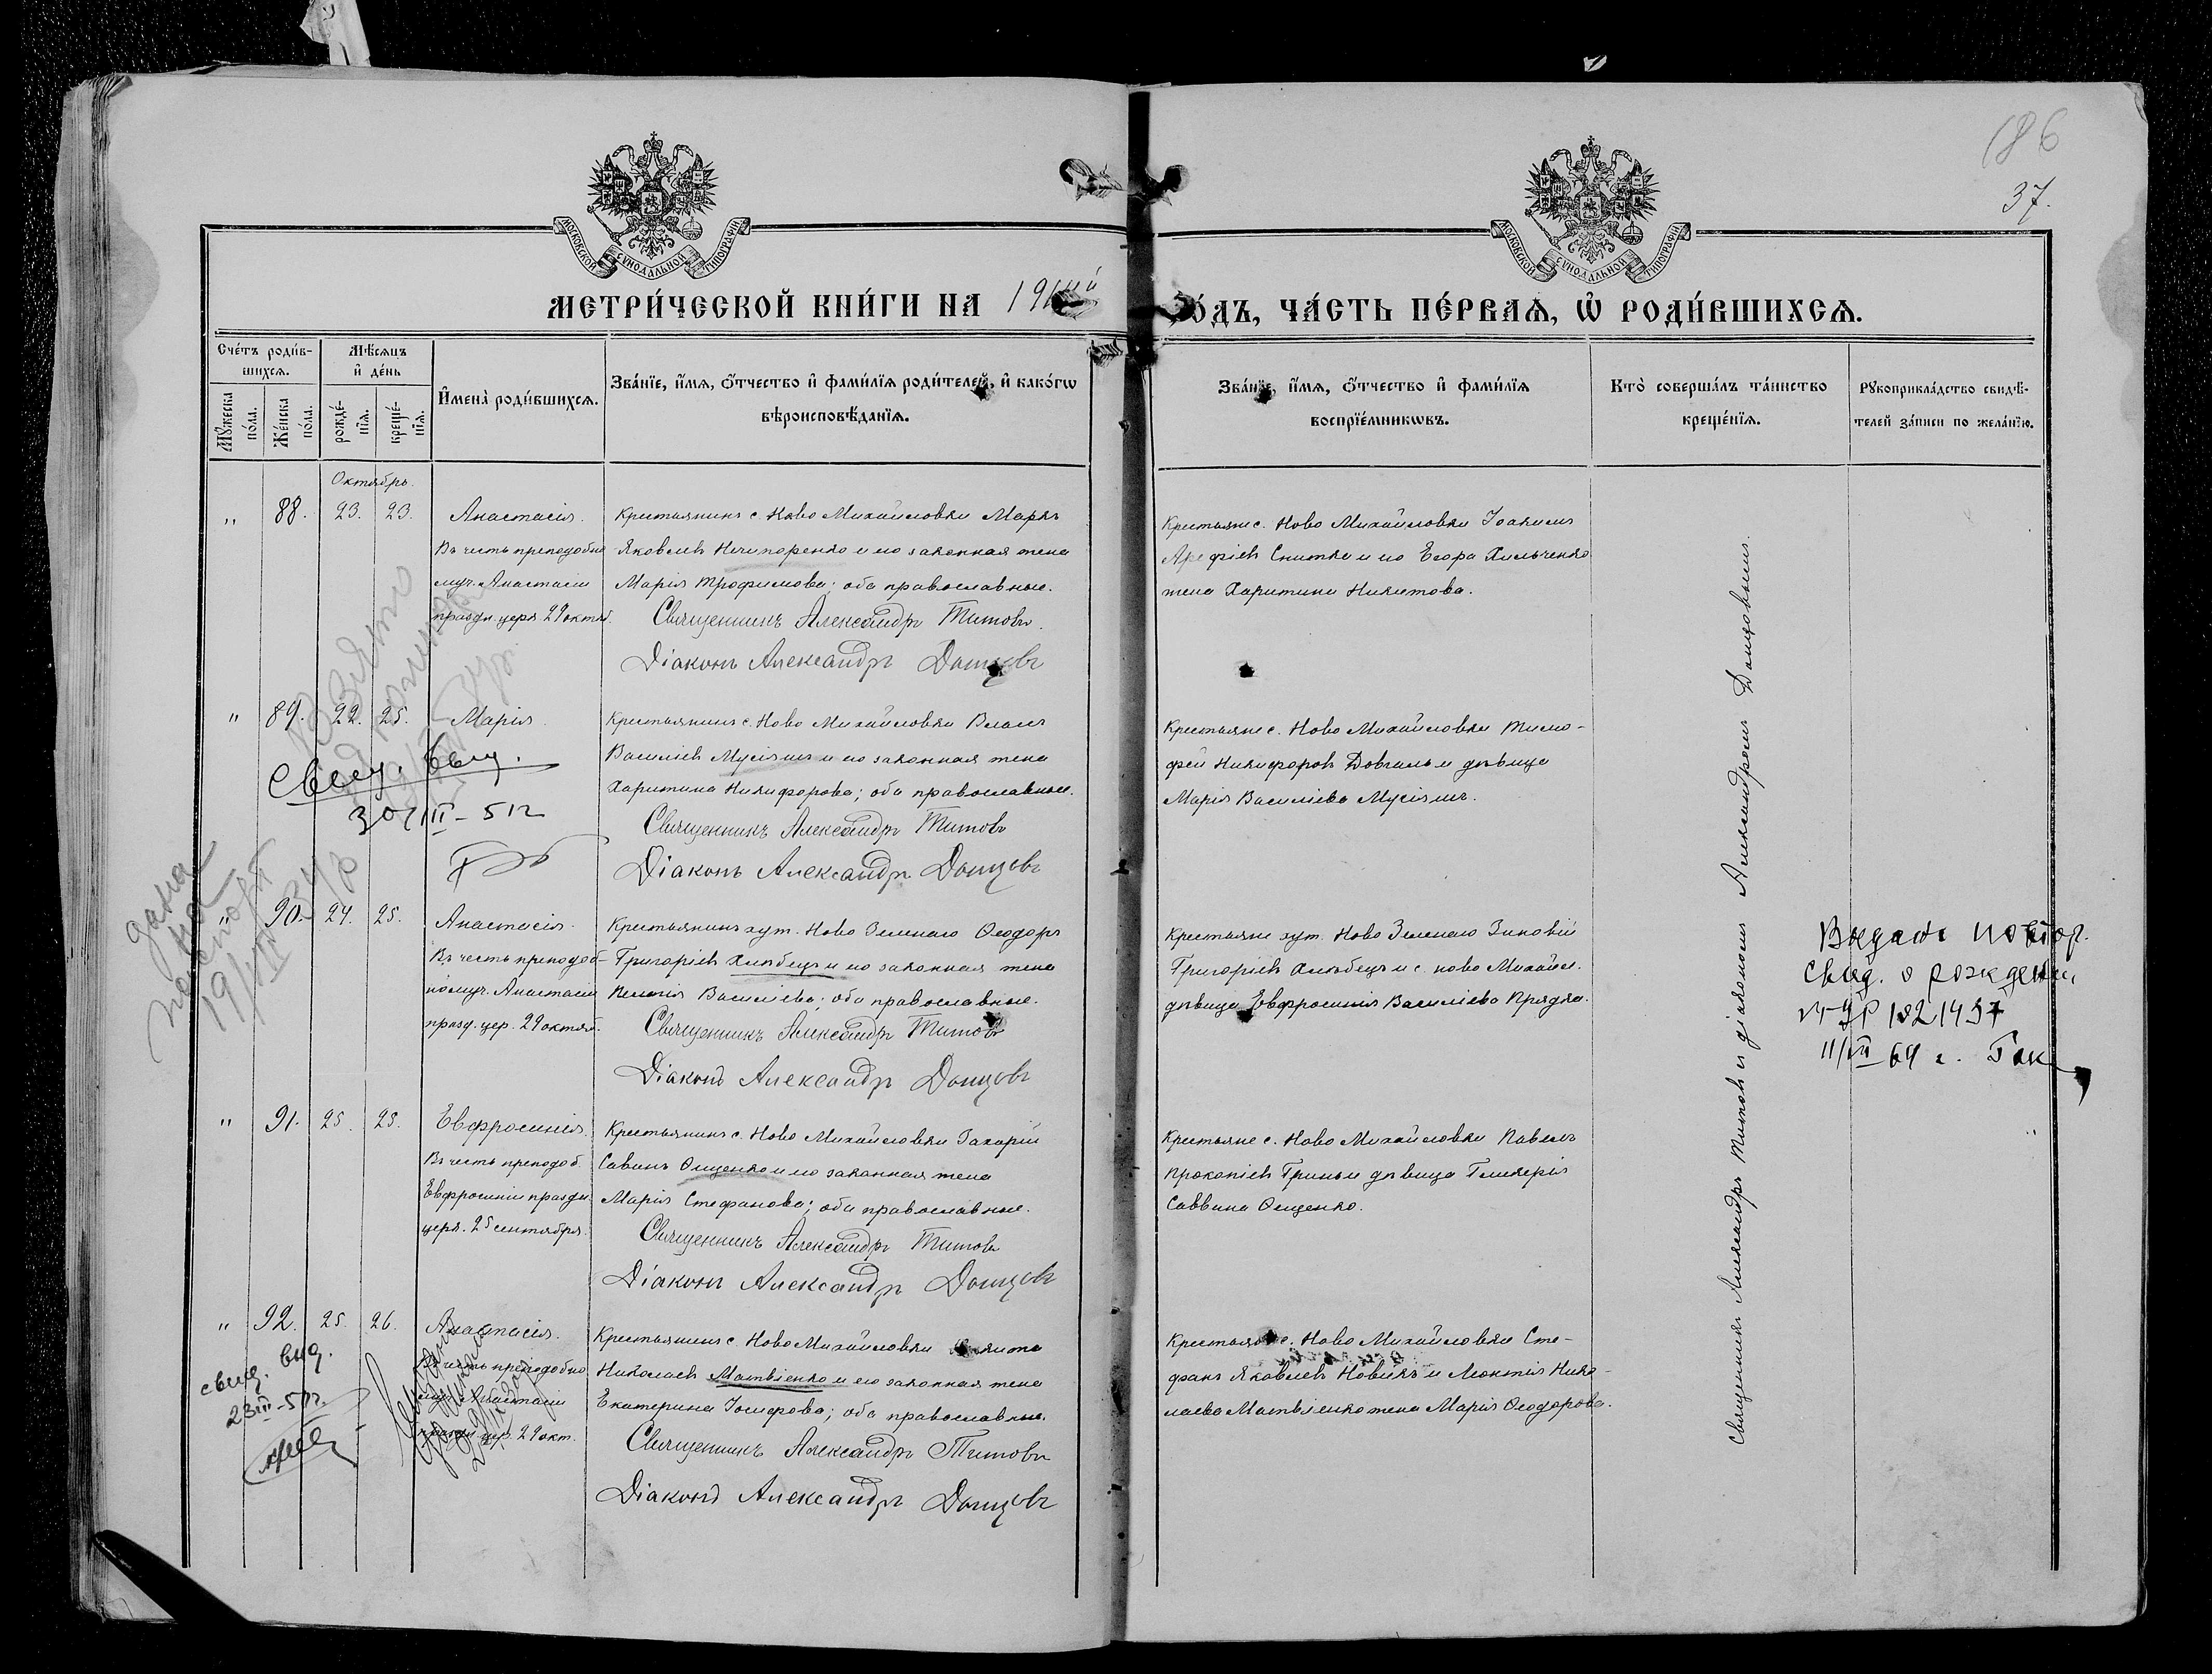 186
37.
МОСКОВСКОЙ СѴНОДАЛЬНОЙ ТИПОГРАФІИ
МОСКОВСКОЙ СѴНОДАЛЬНОЙ ТИПОГРАФІИ
МЕТРИ́ЧЕСКОЙ КНИ́ГИ НА 191
ГО́ДЪ, ЧА́СТЬ ПЕ́РВАѦ, Ѡ҆ РОДИ́ВШИХСѦ.
Сче́тъ роди́в-
шихсѧ.
Мꙋ́жеска
по́ла.
Же́нска
по́ла.
Мѣ́сѧцъ
и҆ де́нь
рожде́-
нїѧ.
креще́-
нїѧ.
И҆мена̀ роди́вшихсѧ.
Зва́нїе, и҆́мѧ, ѻ҆́тчество и҆ фами́лїѧ роди́телей, и҆ како́гѡ
вѣроисповѣ́данїѧ.
Зва́нїе, и҆́мѧ, ѻ҆́тчество и҆ фами́лїѧ
воспрїе́мникѡвъ.
Кто̀ соверша́лъ та́инство
креще́нїѧ.
Рꙋкоприкла́дство свидѣ́-
телей за́писи по жела́нїю.
Октябрь.
" 88. 23. 23.
Анастасія.
Въ честь преподобно
муч. Анастасіи
праздн. церк 29 октяб.
Крестьянинъ с. Ново Михайловки Маркъ
Яковлевъ Ничипоренко и его законная жена
Марія Трофимова; оба православные.
Священникъ Александръ Титовъ.
Діаконъ Александръ Донцовъ
Крестьяне с. Ново Михайловки Іоакимъ
Арефіевъ Снитко и Егора Хильченко
жена Харитина Никитова.
" 89. 22. 25.
Марія
Крестьянинъ с. Ново Михайловки Власъ
Василіевъ Мусіяшъ и его законная жена
Харитина Никифорова; оба православные.
Священникъ Александръ Титовъ
Діаконъ Александръ Донцовъ
Крестьяне с. Ново Михайловки Тимо-
фей Никифоровъ Довгаль и дѣвица
Марія Василіева Мусіяшъ.
30/III - 51г
дана
на
паспорт
" 90. 24. 25.
Анастасія.
Въ честь преподоб-
номуч. Анастасіи
празд. цер. 29 октяб.
Крестьянинъ хут. Ново Зеленаго Ѳеодоръ
Григоріевъ Хлѣбецъ и его законная жена
Пелагія Василіева; оба православные.
Священникъ Александръ Титовъ
Діаконъ Александръ Донцовъ
Крестьяне хут. Ново Зеленаго Зиновій
Григоріевъ Хлѣбецъ и с. ново Михайл.
дѣвица Евфросинія Василіева Прядка.
Выдано повтор.
свид. о рождении
11/VII - 64 г.
" 91. 25. 25.
Евфросинія.
Въ честь преподоб.
Евфросиніи праздн.
церк. 25 сентября
Крестьянинъ с. Ново Михайловки Захарій
Савинъ Онищенко и его законная жена
Марія Стефанова; оба православные.
Священникъ Александръ Титовъ
Діаконъ Александръ Донцовъ
Крестьяне с. Ново Михайловки Павелъ
Прокопіевъ Гринь и дѣвица Гликерія
Саввина Онищенко.
" 92. 25. 26.
Анастасія.
Въ честь преподобно
муч. Анастасіи
праздн. цер. 29 окт.
свид. выд.
23/III-51г.
Крестьянинъ с Ново Михайловки Никита
Николаевъ Матвіенко и его законная жена
Екатерина Іосифова; оба православные.
Священникъ Александръ Титовъ
Діаконъ Александръ Донцовъ
Крестьяне с. Ново Михайловки Сте-
фанъ Яковлевъ Новикъ и Леонтія Нико-
лаева Матвіенко жена Марія Ѳеодорова.
Священникъ Александръ Титовъ и діакономъ Александромъ Донцовымъ.